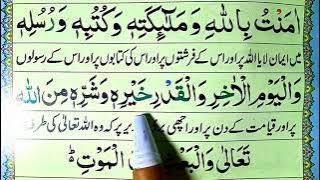 اٰمَنْتُ بِاللّٰهِ وَ مَلٰٓئِكَتِهٖ وَ كُتُبِهٖ وَ رُسُلِهٖ
میں ایمان لایا اللہ پر اور اس کے فرشتوں پر اور اس کی کتابوں پر اور اس کے رسولوں
وَالْيَوْمِ الْاٰخِرِ وَالْقَدْرِ خَيْرِهٖ وَشَرِّهٖ مِنَ اللّٰهِ
پر اور قیامت کے دن پر اور اچھی پر کہ وہ اللہ تعالیٰ کی طرف
تَعَالٰى وَالْبَعْ الْمَوْتِ ؕ